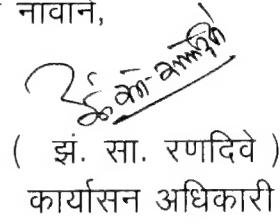 नावाने,
( झं. सा. रणदिवे )
कार्यासन अधिकारी